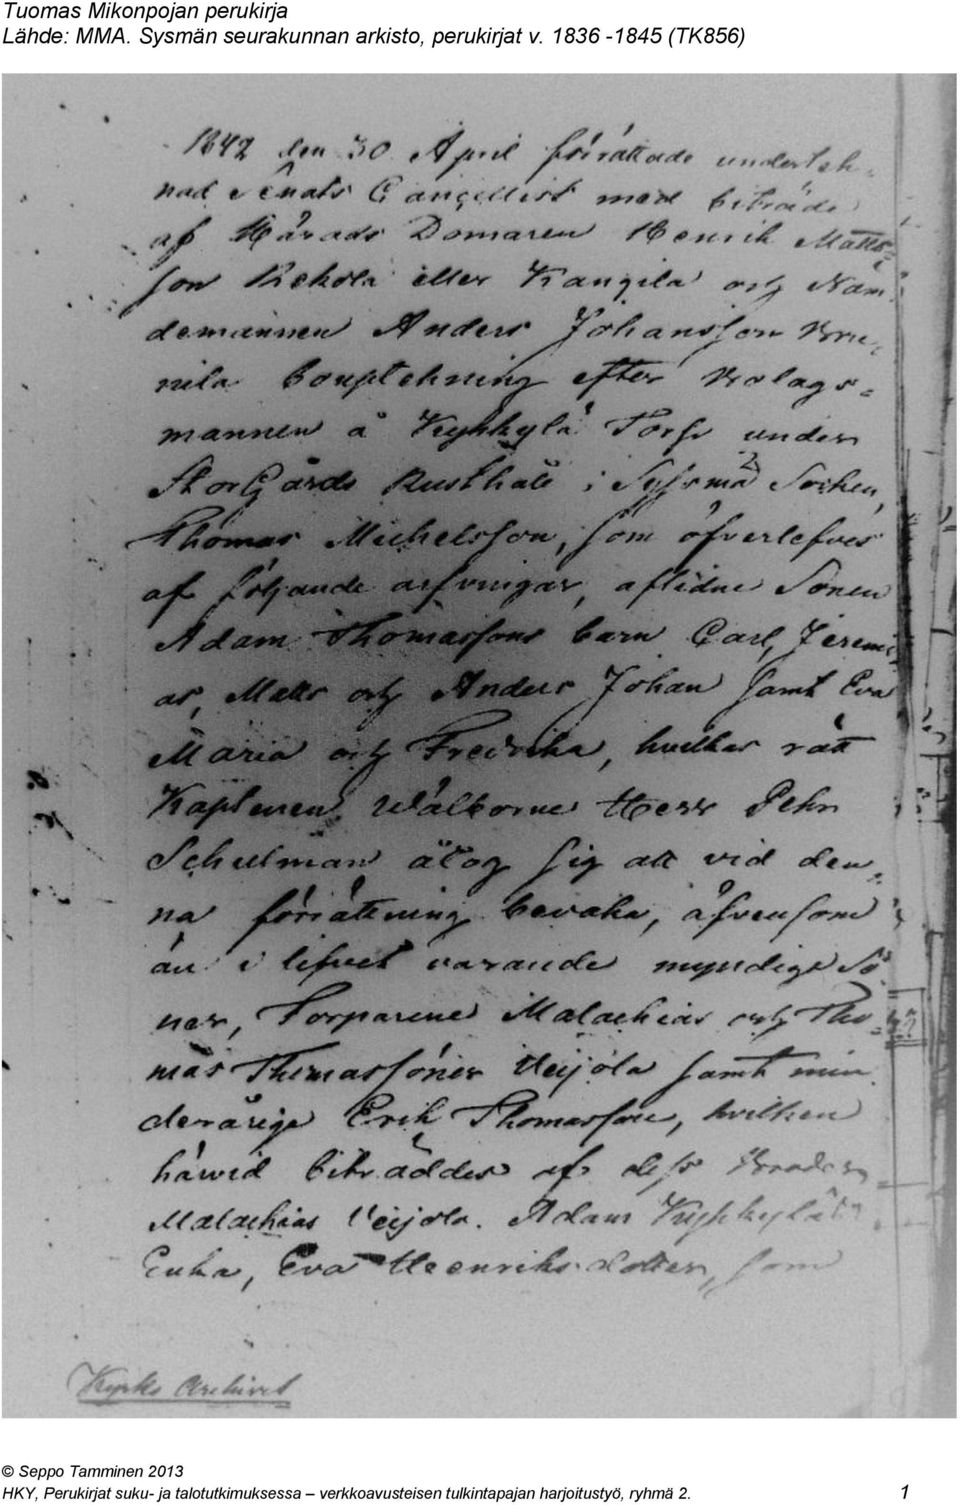 Tuomas Mikonpojan perukirja
Lähde: MMA. Sysmän seurakunnan arkisto, perukirjat v. 1836 -1845 (TK856)
1842 den 30 April förrättade underteh-
nad Senats Cancellist med biträde
af Härads Domaren Henrik Matts-
son Rekola eller Kangila och Näm-
demannen Anders Johansson Bru-
nila bouptekning efter Bolags-
mannen å Kyhkylä Torp under
StorGårds Rusthåll i Sysmä Socken,
Thomas Michelsson, som öfverlefves
af följande arfvingar, aflidne Sonen
Adam Thomassons barn Carl, Jeremi-
as, Matts och Anders Johan samt Eva
Maria och Fredrika, hvilkas rätt
Kaptenen Wälborne Herr Pehr
Schulman åtog sig att vid den-
na förrättning bevaka, äfvensom
än i lifvet varande myndige Sö-
ner, Torparene Malachias och Tho-
mas Thomassöner Heijola samt min
derårige Erik Thomasson, hvilken
härvid biträddes af dess Broder
Malachias Heijola. Adam Kyhkyläs
Enka, Eva Heenriksdotter, som
Kyrko Archivet
© Seppo Tamminen 2013
HKY, Perukirjat suku- ja talotutkimuksessa – verkkoavusteisen tulkintapajan harjoitustyö, ryhmä 2. 1